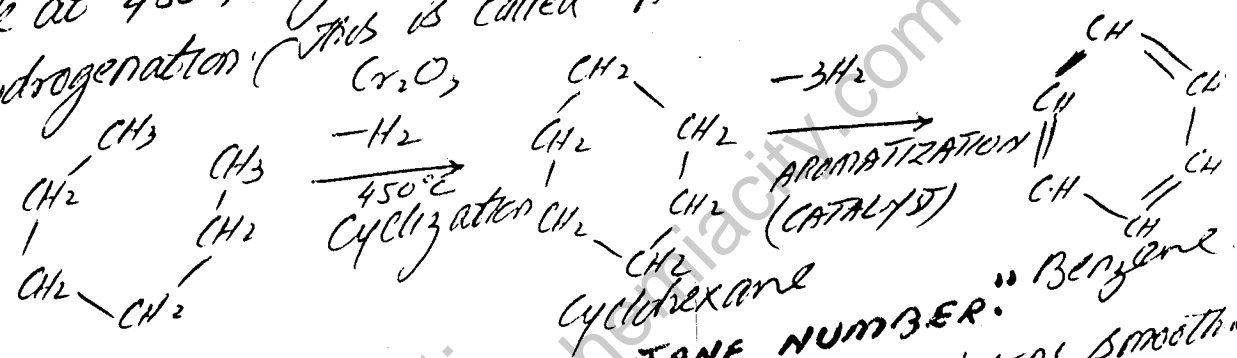 at 450
This is called
drogenation. (
CH3
CH2
CH2
CH2
CH2
CH3
Cr2O3
-H2
450°C
Cyclization
CH2
CH2
CH2
CH2
CH2
CH2
Cyclohexane
-3H2
AROMATIZATION
(CATALYST)
CH
CH
CH
CH
CH
CH
Benzene
TANE NUMBER:"
smooth
chemiacity.com